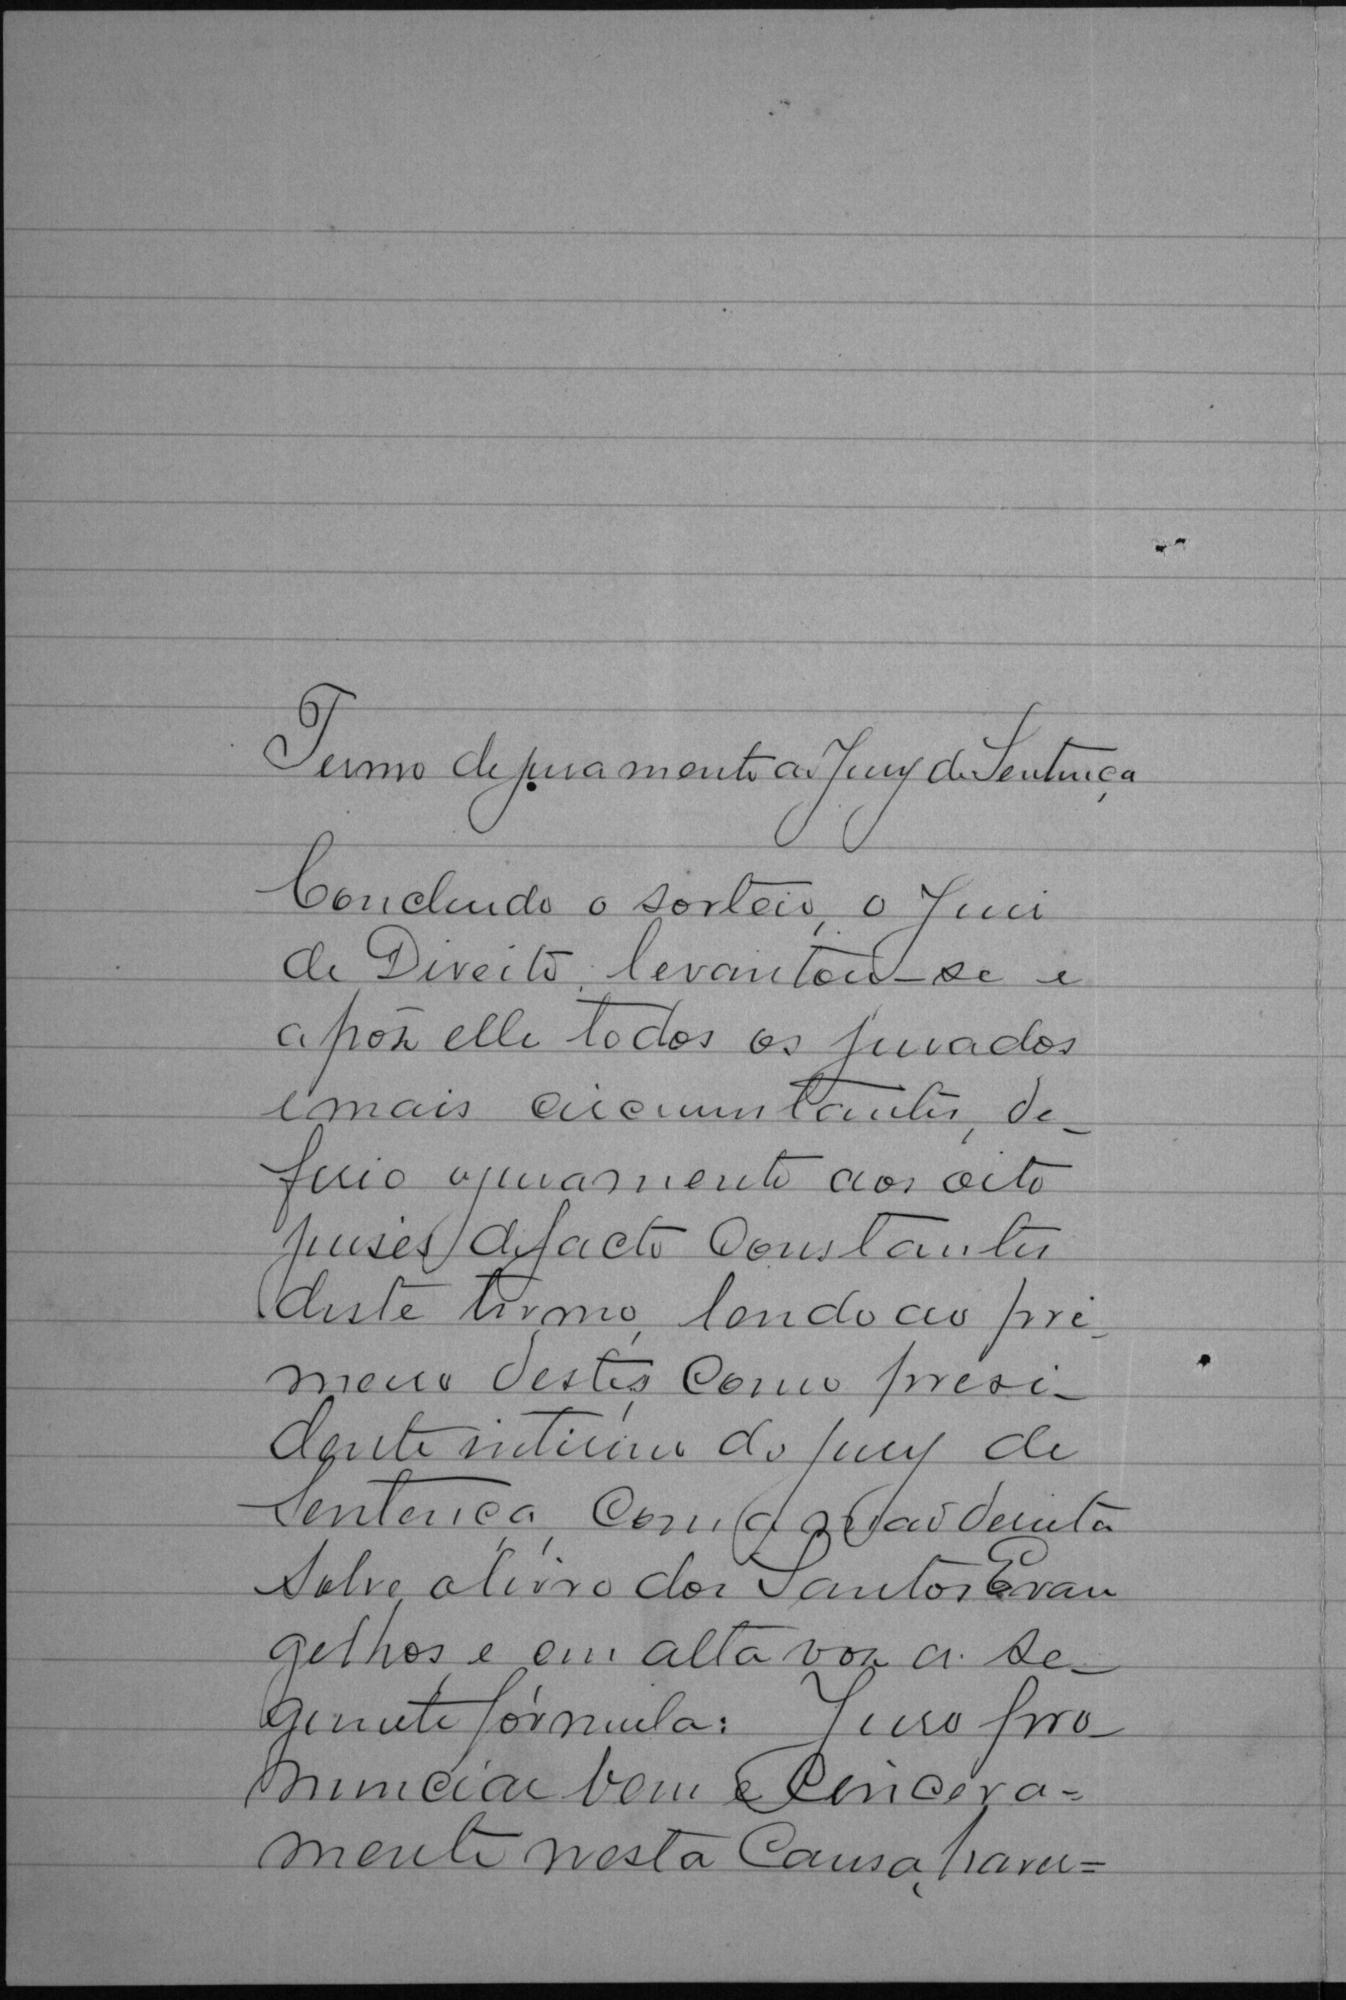 Termo de juramento ao Jury de Sentença
Concluido o sorteio, o Juiz
de Direito, levantou-se e
apóz elle todos os jurados
e mais circumstantes, de-
ferio o juramento aos oito
juises de facto constantes
deste termo, lendo ao pri-
meiro destes, como presi-
dente interino do jury de
Sentença, com a mão direita
sobre o livro dos Santos Evan
gelhos, e em alta voz a se-
guinte fórmula: Juro pro-
nunciar bem e sincera=
mente nesta causa, haver=